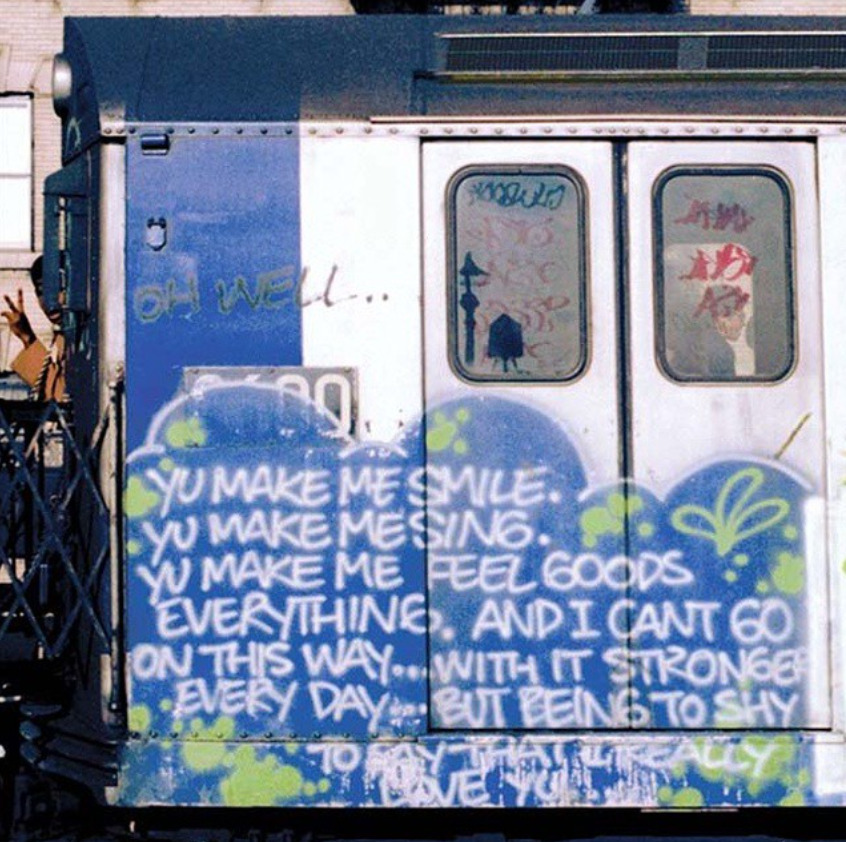 OH WELL...
YU MAKE ME SMILE.
YU MAKE ME SING.
YU MAKE ME FEEL GOODS
EVERYTHING. AND I CANT GO
ON THIS WAY... WITH IT STRONGER
EVERY DAY... BUT BEING TO SHY
TO SAY THAT I REALLY
LOVE YU...